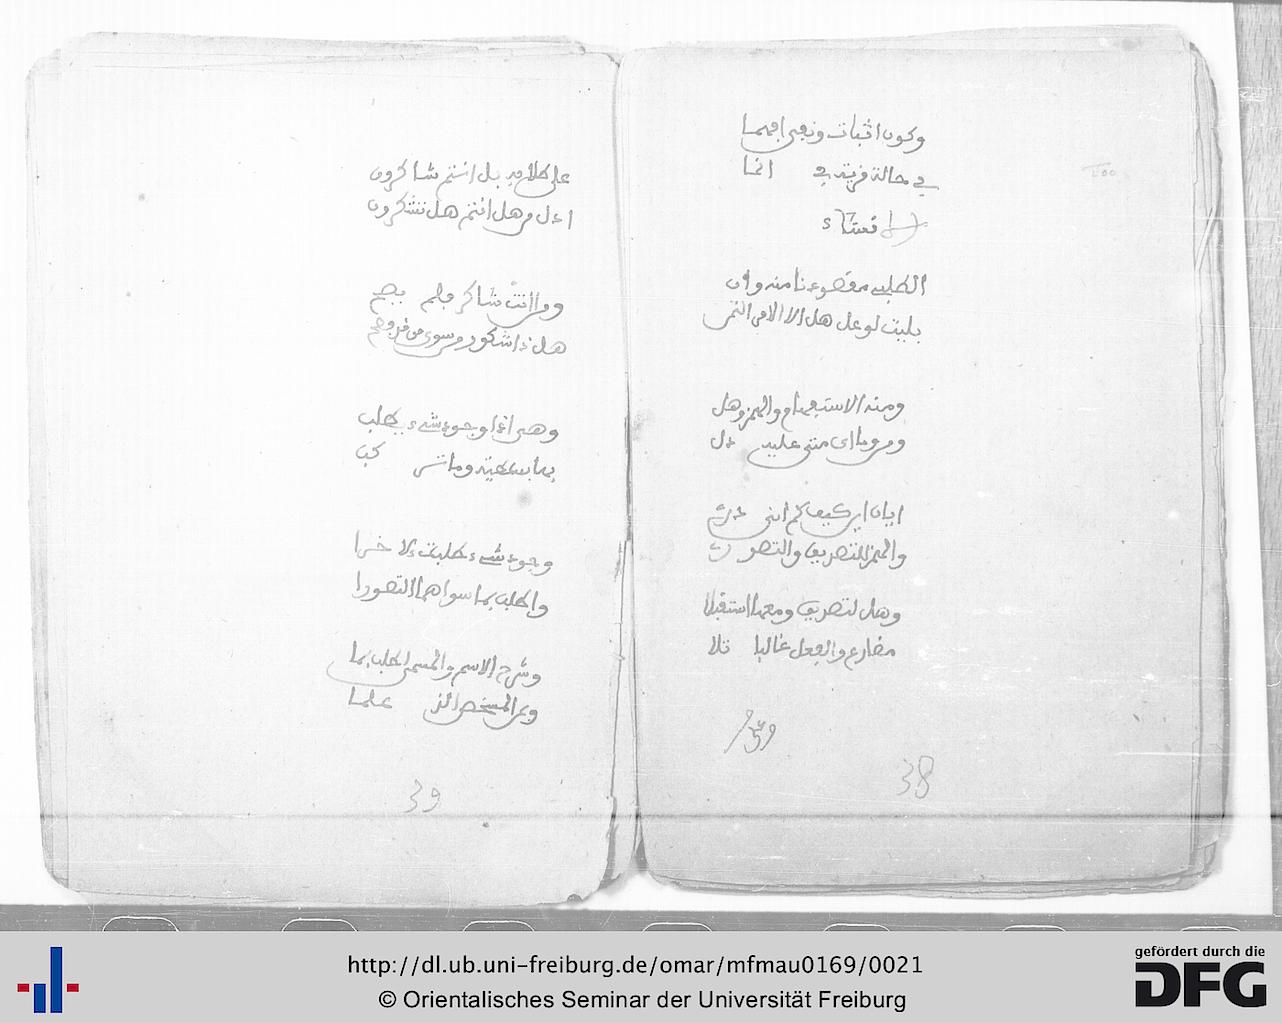 وكون اثبات ونفي افهما
في حالة فريدة في انما
الطلب مقصودنا منه وان
بليت لو عل هل الا
ومنه الاستفهام والهمز وهل
ومن وما اي متى عليه دل
ايان اين كيف كم انى
والهمز للتصديق والتصور
وهل لتصديق ومعها استقبلا
مضارع والفعل غالبا تلا
38
على كلامه بل انتم شاكرون
ادل من هل انتم هل تشكرون
ومن اانت شاكر فلم يصح
هل ذا شكور من سوى من
وهي اذا وجود شيء يطلب
بها بسيطة وما
وجود شيء طلبت لا
واطلب بما سواهما التصورا
وشرح الاسم والمسمى اطلب بما
وعن المشخص الذي علما
39
http://dl.ub.uni-freiburg.de/omar/mfmau0169/0021
© Orientalisches Seminar der Universität Freiburg
gefördert durch die
DFG